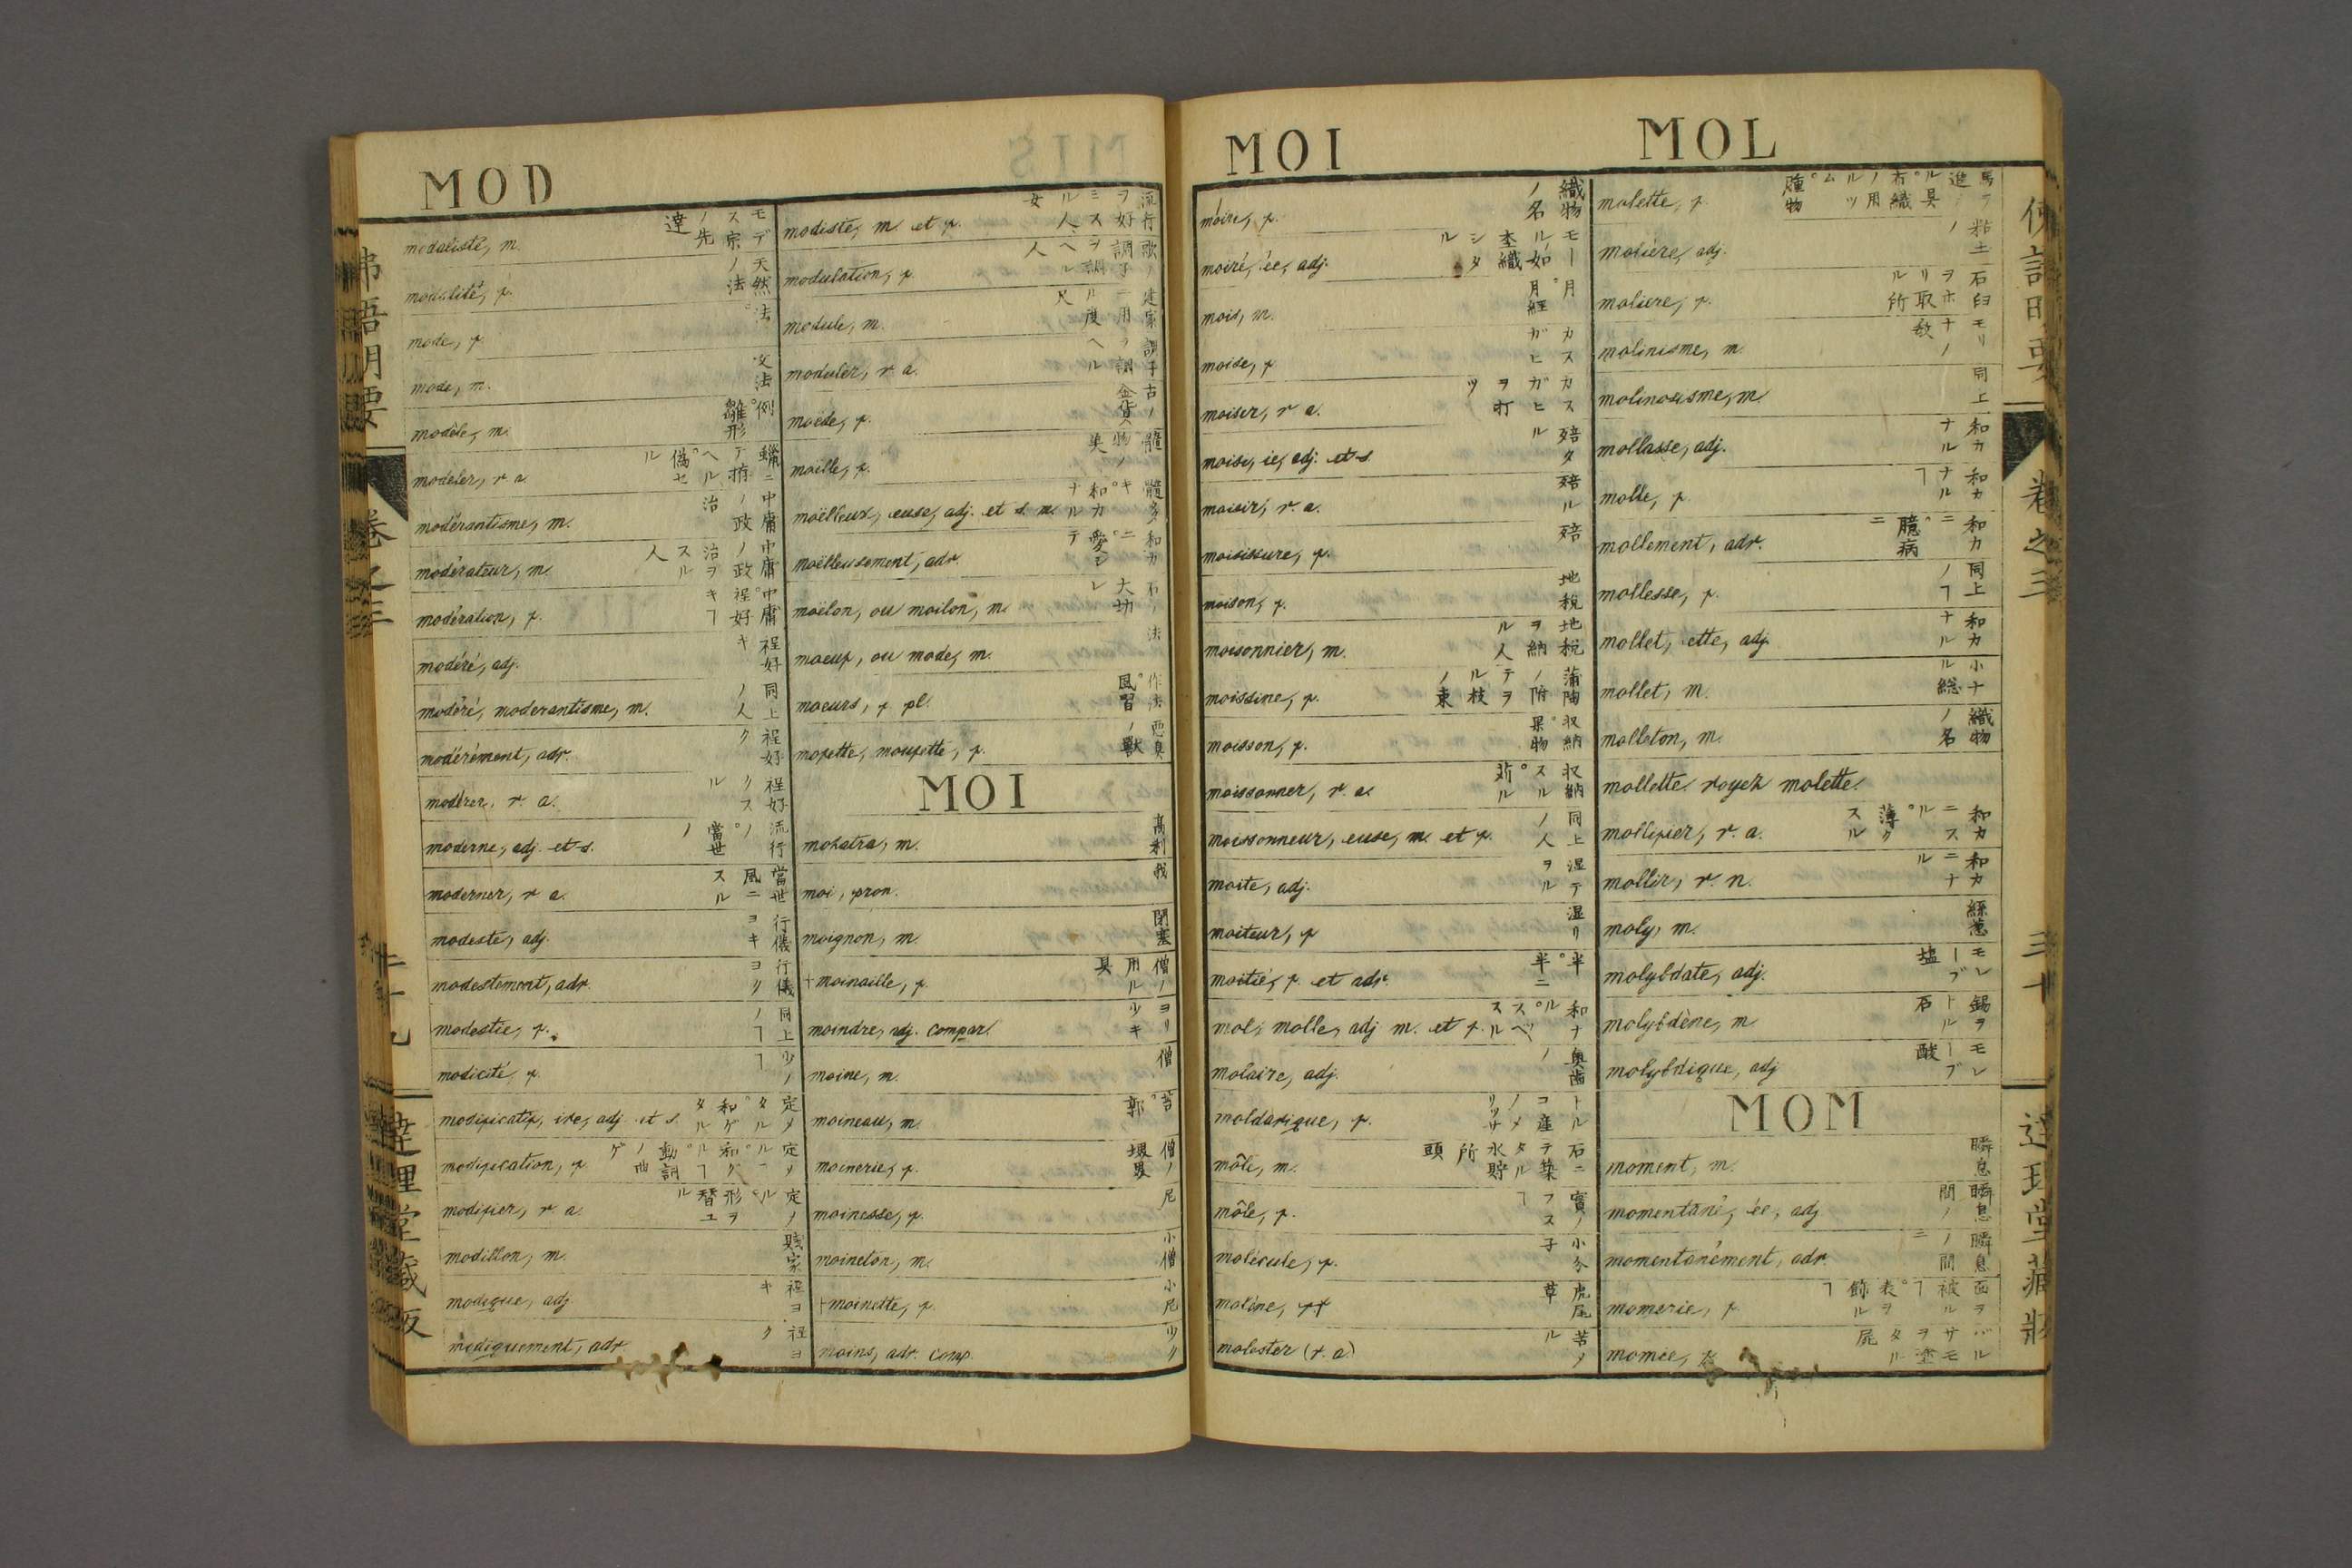 MOD
modaliste, m. モデスノ宗先達
modalité, f. 天然ノ法
mode, f. 法
mode, m. 文法
modèle, m. 例。雛形
modeler, v. a. 蠟ニテ拵ヘル。偽セル
modérantisme, m. 中庸ノ政治
modérateur, m. 中庸ノ政治ヲスル人
modération, f. 中庸。程好キヿ
modéré, adj. 程好キ
modéré, moderantisme, m. 同上ノ人
modérément, adv. 程好ク
modérer, v. a. 程好クスル
moderne, adj. et s. 流行ノ。當世ノ
moderner, v. a. 當世風ニスル
modeste, adj. 行儀ヨキ
modestement, adv. 行儀ヨク
modestie, f. 同上ノヿ
modicité, f. 少ノヿ
modificatif, ive, adj. et s. 定メタル。和ゲタル
modification, f.
modifier, v. a. 定メル。形ヲ替ユル
modillon, m.
modique, adj. 程ヨキ
modiquement, adv. 程ヨク
modiste, m. et f. 流行ヲ好ミスル人、女
modulation, f. 歌ノ調子ヲ調ヘル人
module, m. 建家ニ用ル度尺
moduler, v. a. 調子ヲ調ヘル
moède, f. 古ノ金貨
moëlle, f. 髓。物ノ英
moëlleux, euse, adj. et s. m. 髓多キ。和カナル
moëlleusement, adv. 和カニ。愛シテ
moëlon, ou moilon, m.
moeuf, ou mode, m. 法
moeurs, f. pl. 作法。風習
mofette, moufette, f. 悪臭ノ獸
MOI
mohatra, m. 髙利
moi, pron. 我
moignon, m. 閉塞
+moinaille, f. 僧ノ用ル具
moindre, adj. compar. ヨリ少キ
moine, m. 僧
moineau, m.
moinerie, f. 僧ノ境界
moinesse, f. 尼
moineton, m. 小僧
+moinette, f. 小尼
moins, adv. comp. 少ク
MOI
MOL
moire, f. 織物ノ名
moiré, ée, adj. モールノ如ク織シタル
mois, m. 月。月経
moise, f. カスガヒ
moiser, v. a. カスガヒヲ打ツ
moisi, ie, adj. et s.
moisir, v. a.
moisissure, f.
moison, f. 地税
moisonnier, m. 地税ヲ納ル人
moissine, f. 蒲萄ノ附テルノ枝ヲ束
moisson, f. 収納。果物
moissonner, v. a. 収納スル。斫ル
moissonneur, euse, m. et f. 同上ノ人
moite, adj. 湿テヲル
moiteur, f. 湿リ
moitié, f. et adv. 半。半ニ
mol, molle, adj. m. et f.
molaire, adj. 奥歯ノ
moldavique, f. トルコノ産メリッサ
môle, m. 石ニテ築タル水貯所頭
môle, f.
molécule, f. 小分子
molène, f. 虎尾草
molester (v. a.) 苦メル
molette, f.
molière, adj. 粘土ノ
moliere, f. 石臼ヲホリ取ル所
molinisme, m. モリナノ教
molinosisme, m. 同上
mollasse, adj. 和カナル
molle, f. 和カナルヿ
mollement, adv. 和カニ。臆病ニ
mollesse, f. 同上ノヿ
mollet, ette, adj. 和カナル
mollet, m. 小ナル総
molleton, m. 織物ノ名
mollette voyez molette.
mollifier, v. a. 和カニスル。薄クスル
mollir, v. n. 和カニナル
moly, m. 絲葱
molybdate, adj. モレーブ塩
molybdène, m. 錫ヲトル石
molybdique, adj. モレーブ酸
MOM
moment, m. 瞬息
momentané, ée, adj. 瞬息間ノ
momentanément, adv. 瞬息ノ間ニ
momerie, f. 面ヲ被ルヿ。表ヲ飾ルヿ
momée, f. バルサモヲ塗タル屍
卷之三
三十